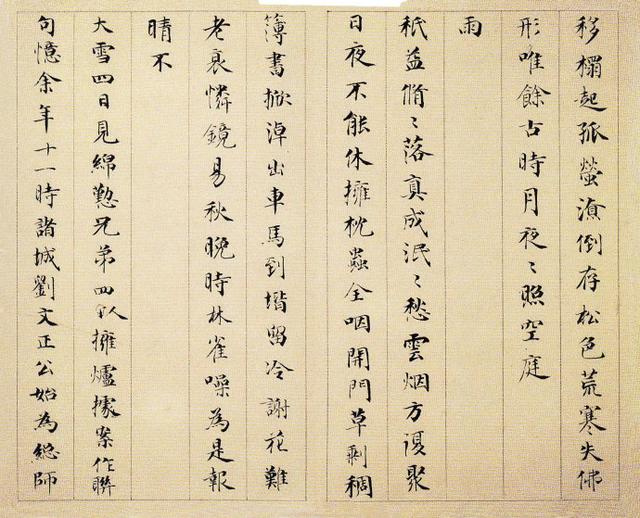 移榻起孤螢潦倒存松色荒寒失佛
形唯餘古時月夜〻照空庭
雨
秖益脩〻落真成泯〻愁雲烟方復聚
日夜不能休擁枕蟲全咽開門草剩稠
簿書掀淖出車馬到堦留冷謝花難
老衰憐鏡易秋晚時林雀噪為是報
晴不
大雪四日見綿懃兄弟四人擁爐據案作聯
句憶余年十一時諸城劉文正公始為總師